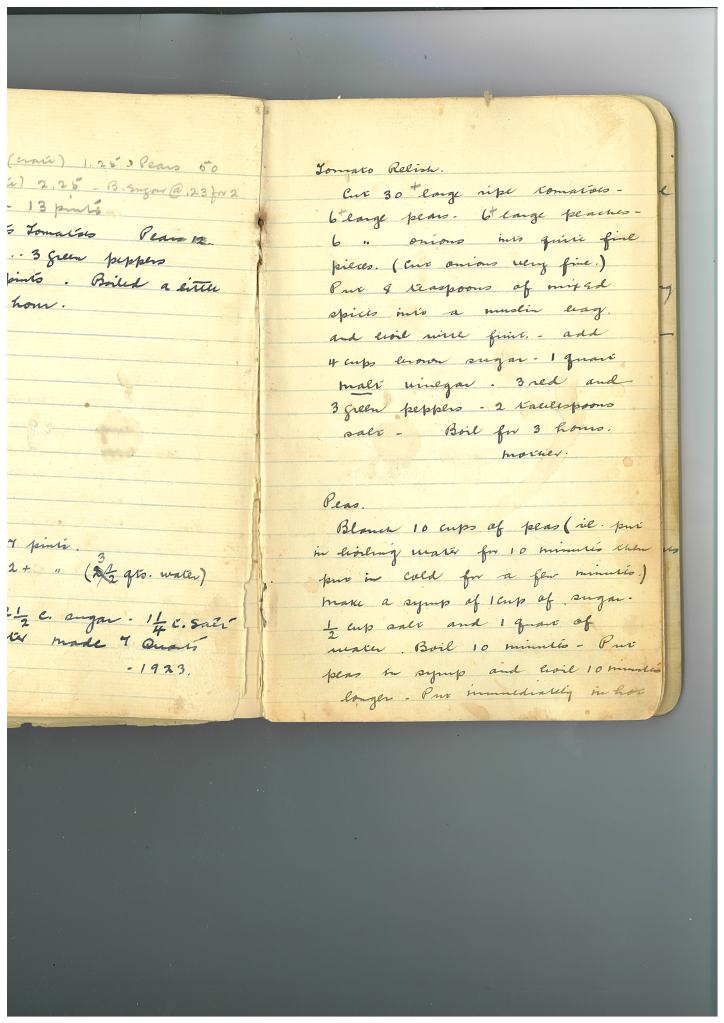 (crate) 1.25 Pears 50
2.25 - B. Sugar @ .23 for 2
- 13 pints
Tomatoes Pears 12.
3 green peppers
pints. Boiled a little
hour.
7 pints.
2 + " (3 1/2 qts. water)
2 1/2 c. sugar - 1 1/4 c. salt
made 7 Quarts
- 1923.
Tomato Relish.
Cut 30 + large ripe tomatoes -
6 + large pears - 6 + large peaches -
6 " onions into quite fine
pieces. (Cut onions very fine.)
Put 8 teaspoons of mixed
spices into a muslin bag
and boil with fruit. - add
4 cups brown sugar - 1 quart
malt vinegar - 3 red and
3 green peppers - 2 tablespoons
salt - Boil for 3 hours.
Mother.
Peas.
Blanch 10 cups of peas (ie. put
in boiling water for 10 minutes then
put in cold for a few minutes.)
Make a syrup of 1 cup of sugar -
1/2 cup salt and 1 quart of
water. Boil 10 minutes - Put
peas in syrup and boil 10 minutes
longer - Put immediately in hot